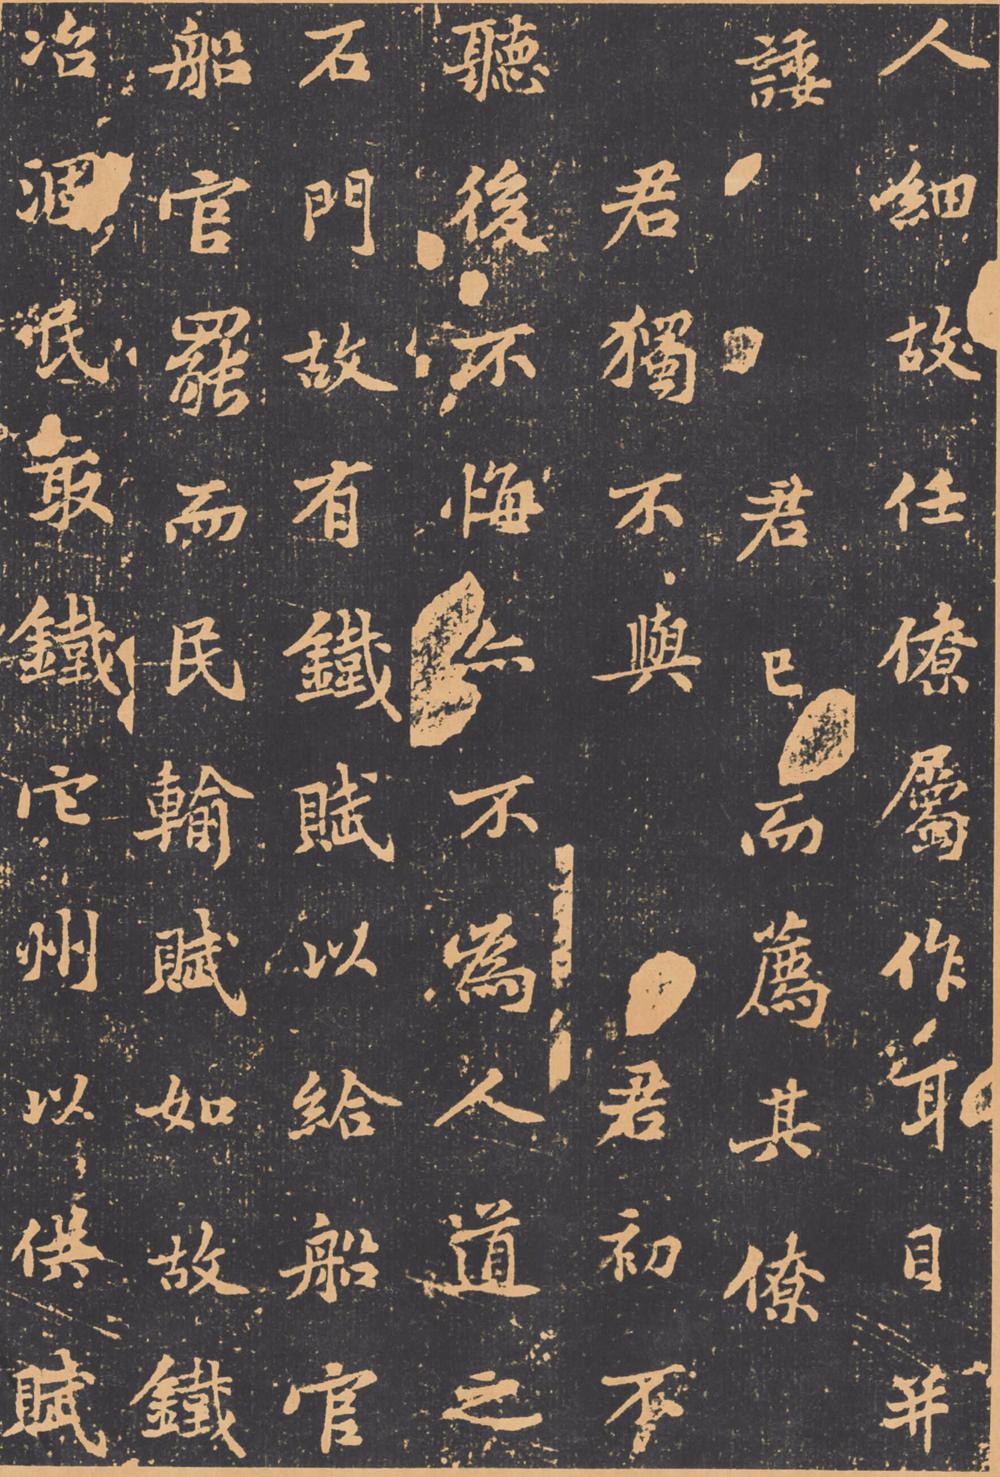 人細故任僚屬作耳目并
諉君已而薦其僚
君獨不與君初不
聽後不悔亦不為人道之
石門故有鐵賦以給船官
船官罷而民輸賦如故鐵
冶涸民取鐵它州以供賦